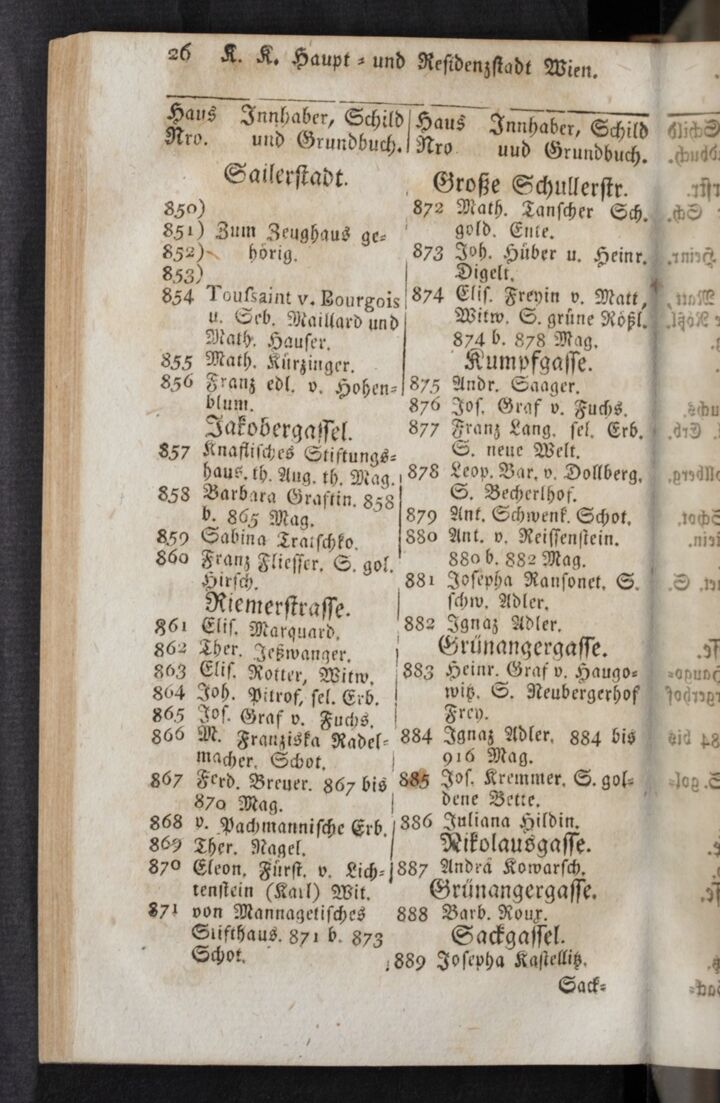 26 K. K. Haupt = und Residenzstadt Wien.
Haus Innhaber, Schild
Nro. und Grundbuch.
Sailerstadt.
850)
851) Zum Zeughaus ge=
852) hörig.
853)
854 Toussaint v. Bourgois
u. Seb. Maillard und
Math. Hauser.
855 Math. Kürzinger.
856 Franz edl. v. Hohen=
blum.
Jakobergassel.
857 Knaflisches Stiftungs=
haus. th. Aug. th. Mag.
858 Barbara Graftin. 858
b. 865 Mag.
859 Sabina Tratschko.
860 Franz Fliesser. S. gol.
Hirsch.
Riemerstrasse.
861 Elis. Marquard.
862 Ther. Jetzwanger.
863 Elis. Rotter, Witw.
864 Joh. Pitrof, sel. Erb.
865 Jos. Graf v. Fuchs.
866 M. Franziska Radel=
macher. Schot.
867 Ferd. Breuer. 867 bis
870 Mag.
868 v. Pachmannische Erb.
869 Ther. Nagel.
870 Eleon. Fürst. v. Lich=
tenstein (Karl) Wit.
871 von Mannagetisches
Stifthaus. 871 b. 873
Schot.
Haus Innhaber, Schild
Nro uud Grundbuch.
Große Schullerstr.
872 Math. Tanscher Sch.
gold. Ente.
873 Joh. Hüber u. Heinr.
Digelt.
874 Elis. Freyin v. Matt,
Witw. S. grüne Rößl.
874 b. 878 Mag.
Kumpfgasse.
875 Andr. Saager.
876 Jos. Graf v. Fuchs.
877 Franz Lang. sel. Erb.
S. neue Welt.
878 Leop. Bar. v. Dollberg,
S. Becherlhof.
879 Ant. Schwenk. Schot.
880 Ant. v. Reissenstein.
880 b. 882 Mag.
881 Josepha Ransonet. S.
schw. Adler.
882 Ignaz Adler.
Grünangergasse.
883 Heinr. Graf v. Haugo=
witz. S. Neubergerhof
Frey.
884 Ignaz Adler. 884 bis
916 Mag.
885 Jos. Kremmer. S. gol=
dene Bette.
886 Juliana Hildin.
Nikolausgasse.
887 Andrä Kowarsch.
Grünangergasse.
888 Barb. Roux.
Sackgassel.
889 Josepha Kastellitz.
Sack=